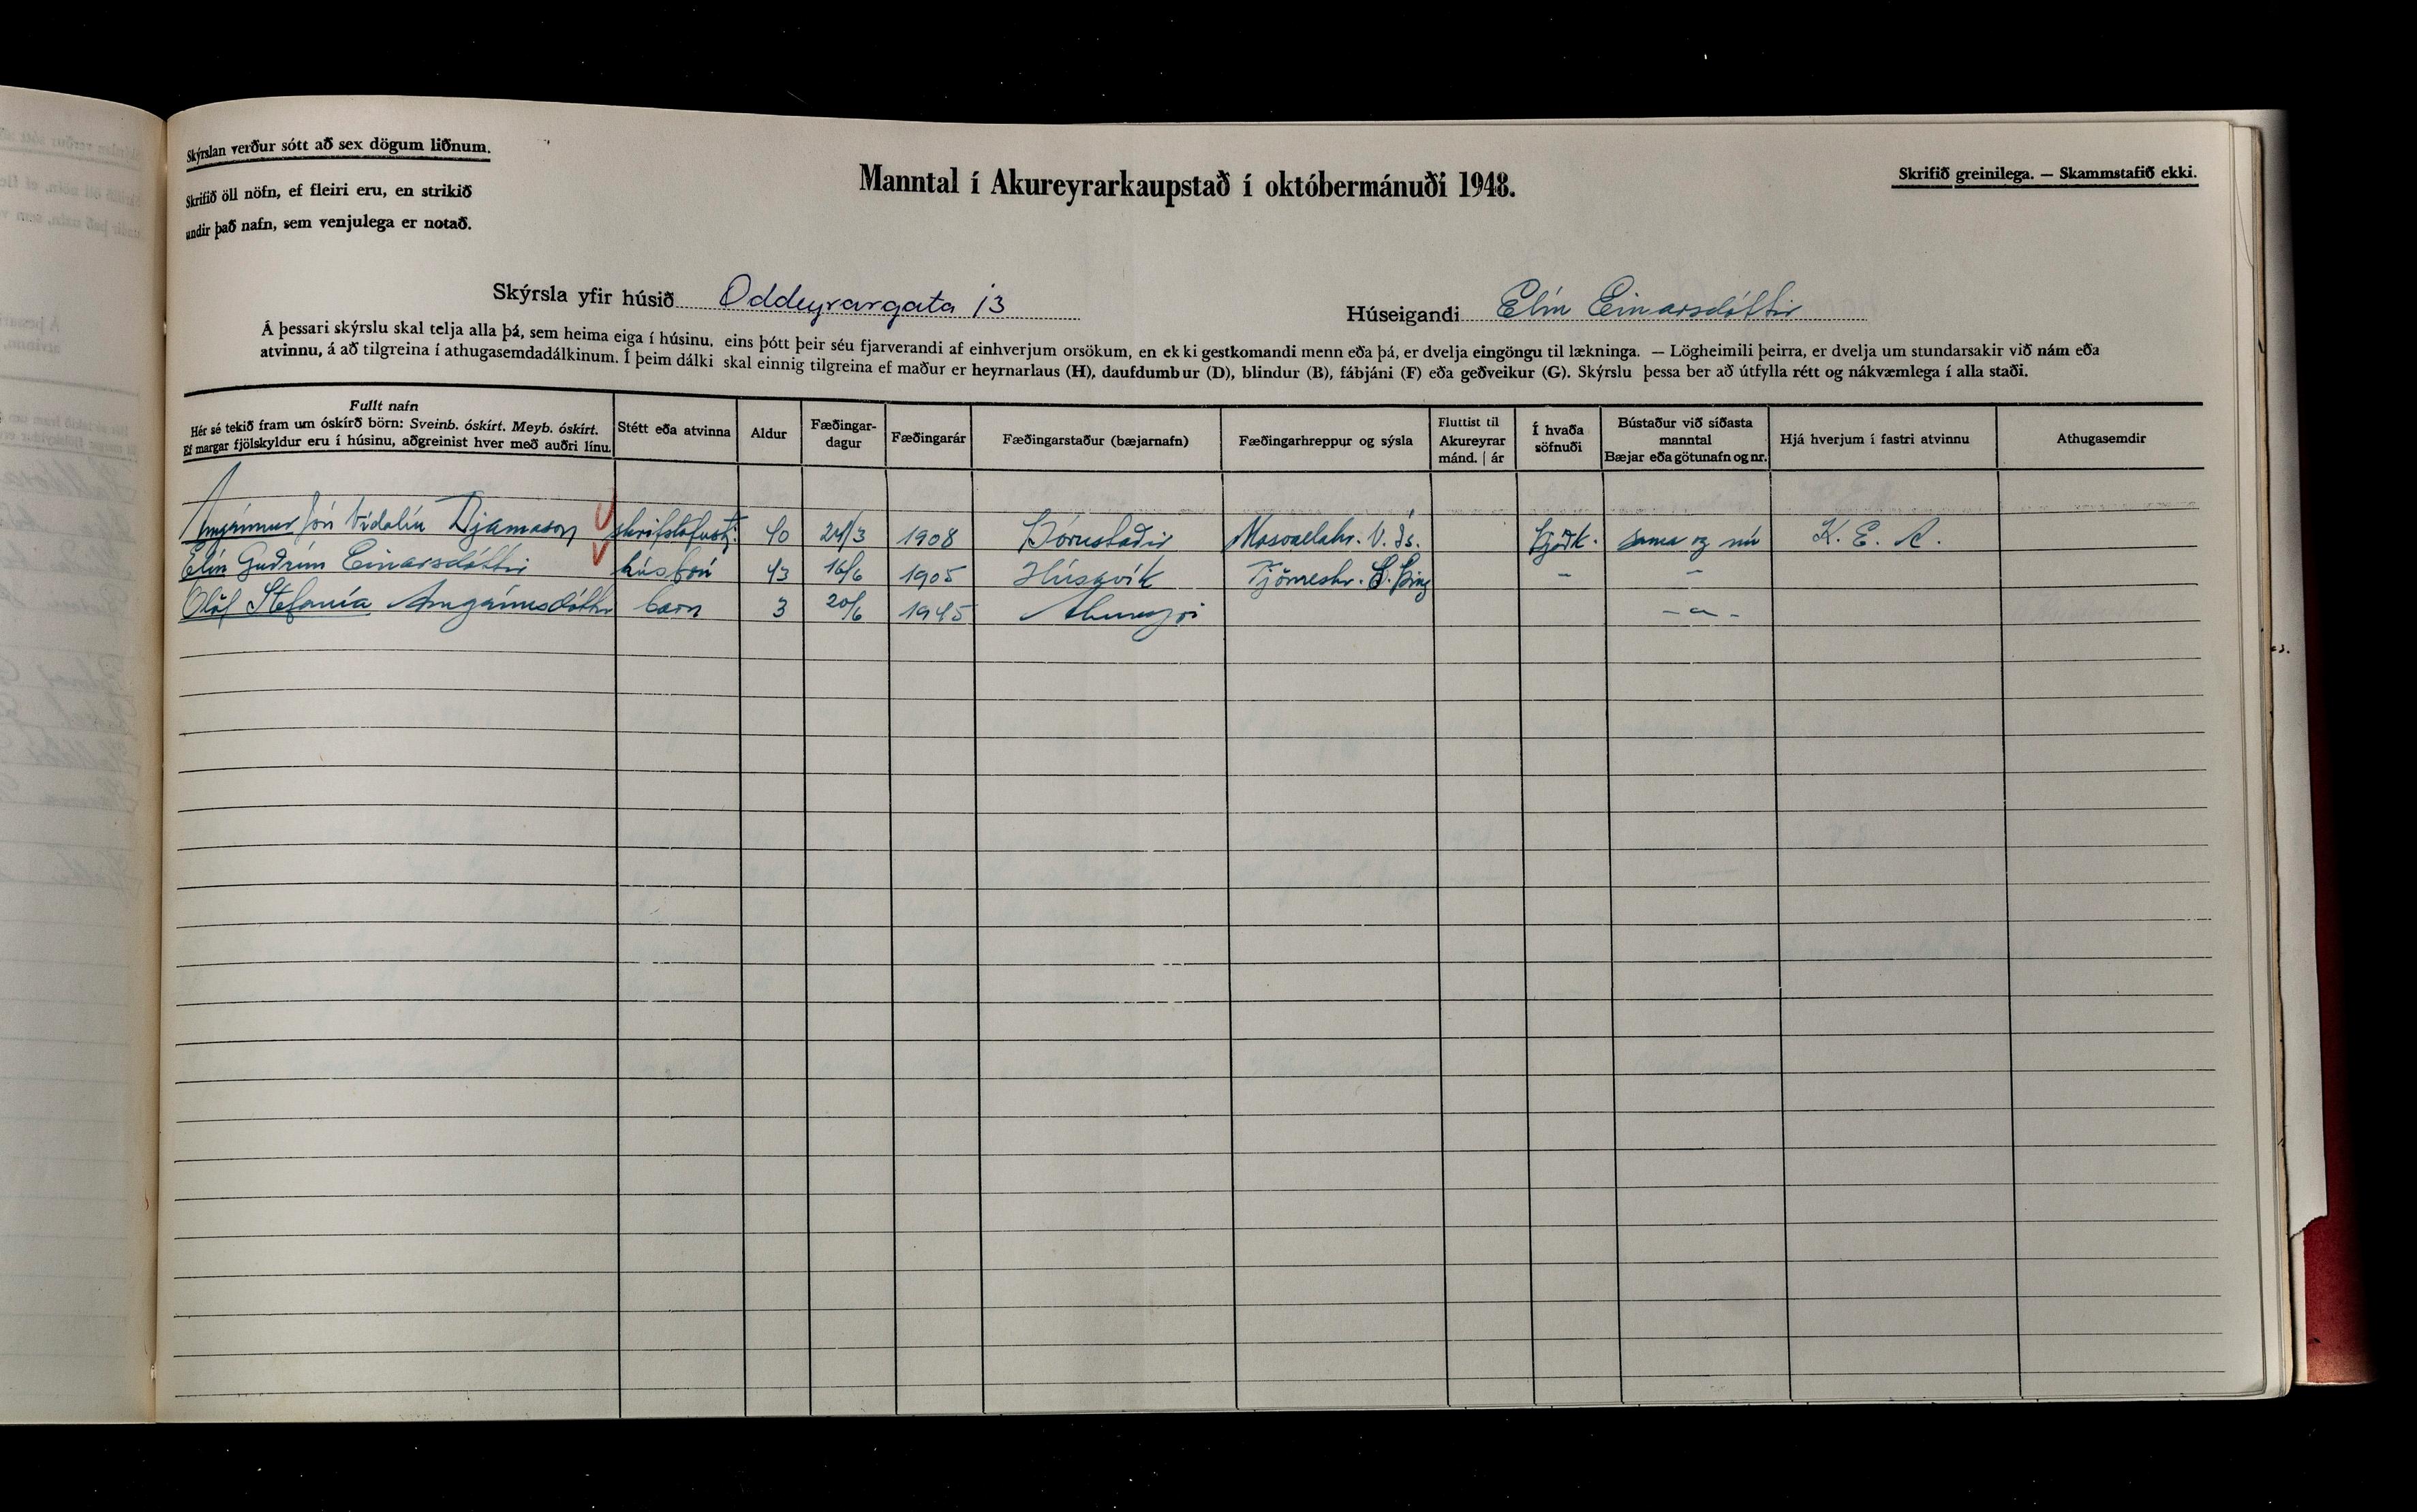 Skýrslan verður sótt að sex dögum liðnum.
Skrifið öll nöfn, ef fleiri eru, en strikið
undir það nafn, sem venjulega er notað.
Manntal í Akureyrarkaupstað í októbermánuði 1948.
Skrifið greinilega. — Skammstafið ekki.
Skýrsla yfir húsið Oddeyrargata 13
Húseigandi Elín Einarsdóttir
Á þessari skýrslu skal telja alla þá, sem heima eiga í húsinu, eins þótt þeir séu fjarverandi af einhverjum orsökum, en ekki gestkomandi menn eða þá, er dvelja eingöngu til lækninga. — Lögheimili þeirra, er dvelja um stundarsakir við nám eða
atvinnu, á að tilgreina í athugasemdadálkinum. Í þeim dálki skal einnig tilgreina ef maður er heyrnarlaus (H), daufdumbur (D), blindur (B), fábjáni (F) eða geðveikur (G). Skýrslu þessa ber að útfylla rétt og nákvæmlega í alla staði.
Fullt nafn
Hér sé tekið fram um óskírð börn: Sveinb. óskírt. Meyb. óskírt.
Ef margar fjölskyldur eru í húsinu, aðgreinist hver með auðri línu.
Stétt eða atvinna
Aldur
Fæðingar-
dagur
Fæðingarár
Fæðingarstaður (bæjarnafn)
Fæðingarhreppur og sýsla
Fluttist til
Akureyrar
mánd. | ár
Í hvaða
söfnuði
Bústaður við síðasta
manntal
Bæjar eða götunafn og nr.
Hjá hverjum í fastri atvinnu
Athugasemdir
Arngrímur Jón Vídalín Bjarnason skrifstofustj. 40 24/3 1908 Þórustaðir Mosvallahr. V. Ís. þjóðk. sama og nú K. E. A.
Elín Guðrún Einarsdóttir húsfrú 43 16/6 1905 Húsavík Tjörneshr. S. Þing - -
Ólöf Stefanía Arngrímsdóttir barn 3 20/6 1945 Akureyri - " -